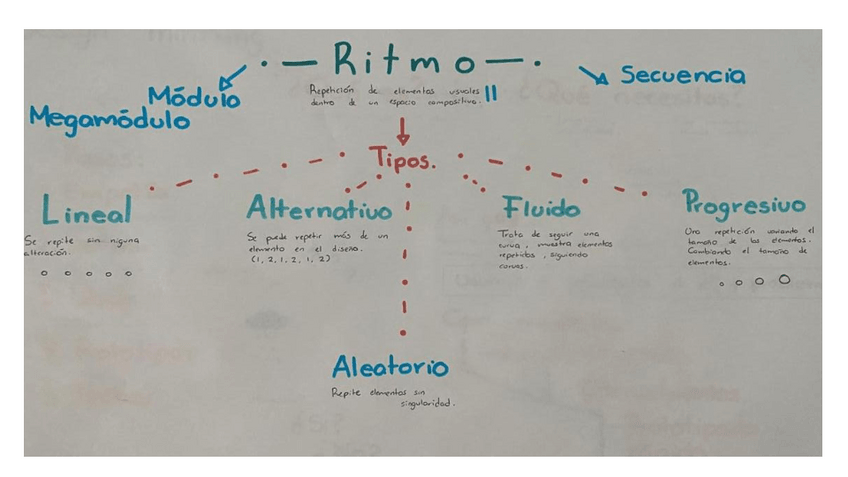 Ritmo
Repetición de elementos usuales
dentro de un espacio compositivo.
Secuencia
Módulo
Megamódulo
Tipos.
Lineal
Se repite sin niguna
alteración.
Alternativo
Se puede repetir más de un
elemento en el diseño.
(1, 2, 1, 2, 1, 2)
Fluido
Trata de seguir una
curva, muestra elementos
repetidos, siguiendo
curvas.
Progresivo
Una repetición variando el
tamaño de los elementos.
Cambiando el tamaño de
elementos.
Aleatorio
Repite elementos sin
singularidad.